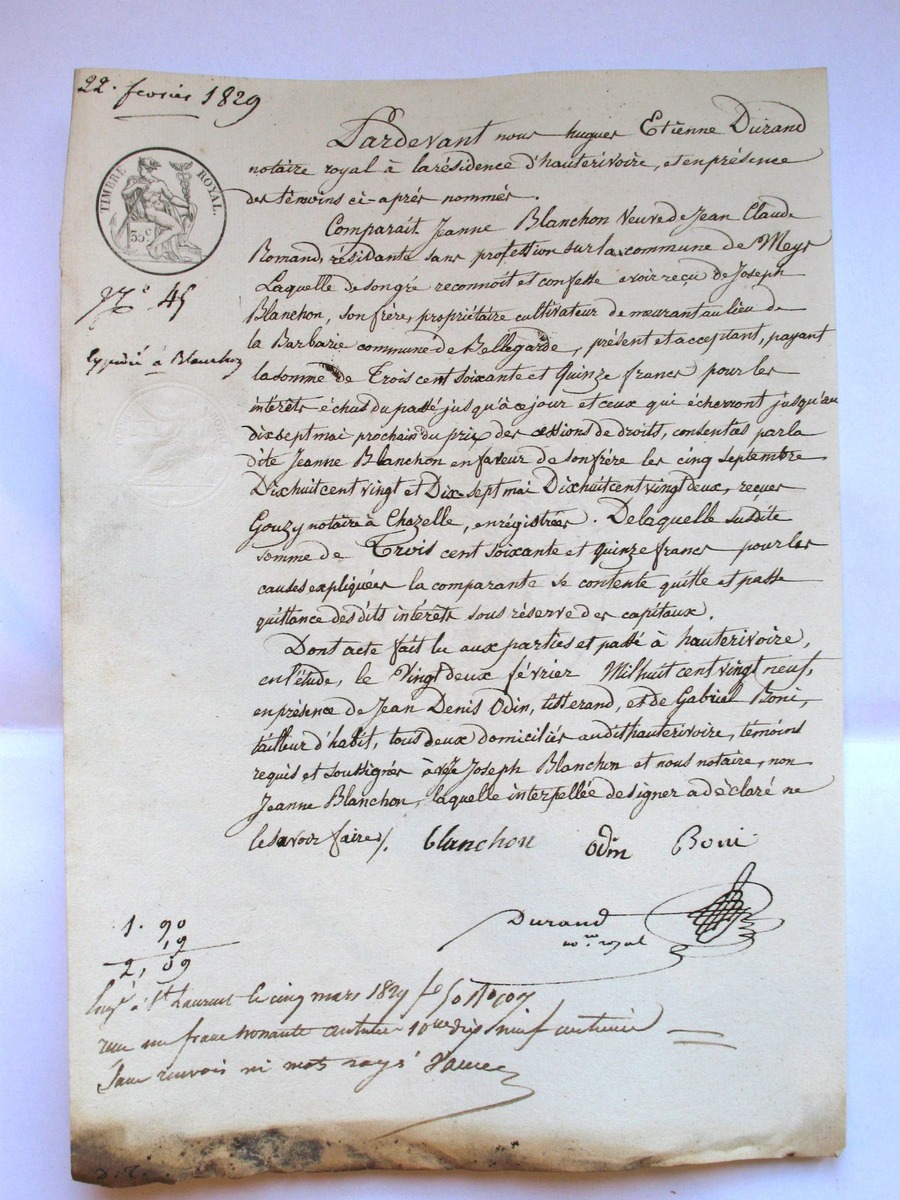 22. fevrier 1829
TIMBRE ROYAL.
35 c
N.° 45
Expedié à Blanchon
Pardevant nous hugues Etienne Durand
notaire royal à la résidence d'hauterivoire, et en présence
des témoins ci-après nommés.
Comparait Jeanne Blanchon Veuve de Jean Claude
Romand, résidante sans profession sur la commune de Meys
Laquelle de son gré reconnoit et confesse avoir reçu de Joseph
Blanchon, son frère, propriétaire cultivateur demeurant au lieu de
la Barbarie commune de Bellegarde, présent et acceptant, payant
la somme de Trois cent soixante et Quinze francs pour les
intérêts échus du passé jusqu'à ce jour et ceux qui écherront jusqu'au
dix sept mai prochain du prix des cessions de droits, consenties par la
dite Jeanne Blanchon en faveur de son frère les cinq septembre
Dix huit cent vingt et Dix-sept mai Dix huit cent vingt deux, reçues
Gouzy notaire à Chazelle, enrégistrées. De laquelle susdite
somme de Trois cent soixante et quinze francs pour les
causes expliquées la comparante se contente quitte et passe
quittance des dits intérêts sous réserve des capitaux.
Dont acte fait lu aux parties et passé à hauterivoire,
en l'étude, le Vingt deux février Mil huit cent vingt neuf,
en présence de Jean Denis Odin, tisserand, et de Gabriel Boni,
tailleur d'habit, tous deux domiciliés audit hauterivoire, témoins
requis et soussignés avec Joseph Blanchon et nous notaire, non
Jeanne Blanchon, laquelle interpellée de signer a déclaré ne
le savoir faire/. blanchon odin Boni
Durand
no.re royal
1. 90
, 19
2, 09
Enrg.é à St Laurent le cinq mars 1829 f.
reçu un franc nonante centimes 10.me dix neuf centimes
sans renvois ni mots rayés